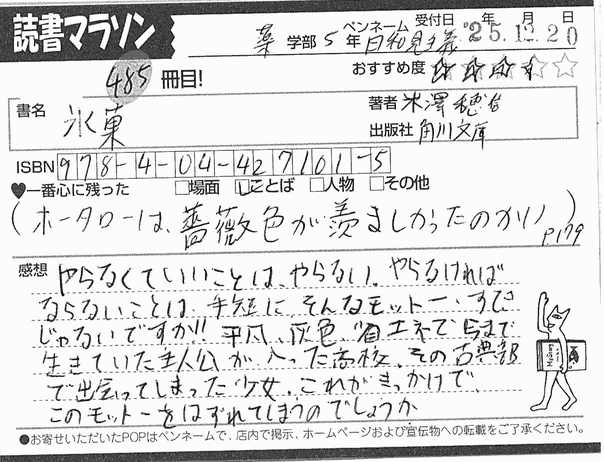 読書マラソン
薬 学部 5 年 ペンネーム 日和見主義 受付日 '25年12月20日
485 冊目! おすすめ度 ☆☆☆☆☆
書名 氷菓
著者 米澤穂信
出版社 角川文庫
ISBN 978-4-04-427101-5
♥一番心に残った □場面 □ことば □人物 □その他
(ホータローは、薔薇色が羨ましかったのかい) P.179
感想 やらなくていいことは、やらない。やらなければ
ならないことは、手短に。そんなモットー、すてき
じゃないですか!! 平凡、灰色、省エネで今まで
生きていた主人公が入った高校、その古典部
で出会ってしまった少女。これがきっかけで、
このモットーをはずれてしまうのでしょうか
●お寄せいただいたPOPはペンネームで、店内で掲示、ホームページおよび宣伝物への転載をご了承ください。